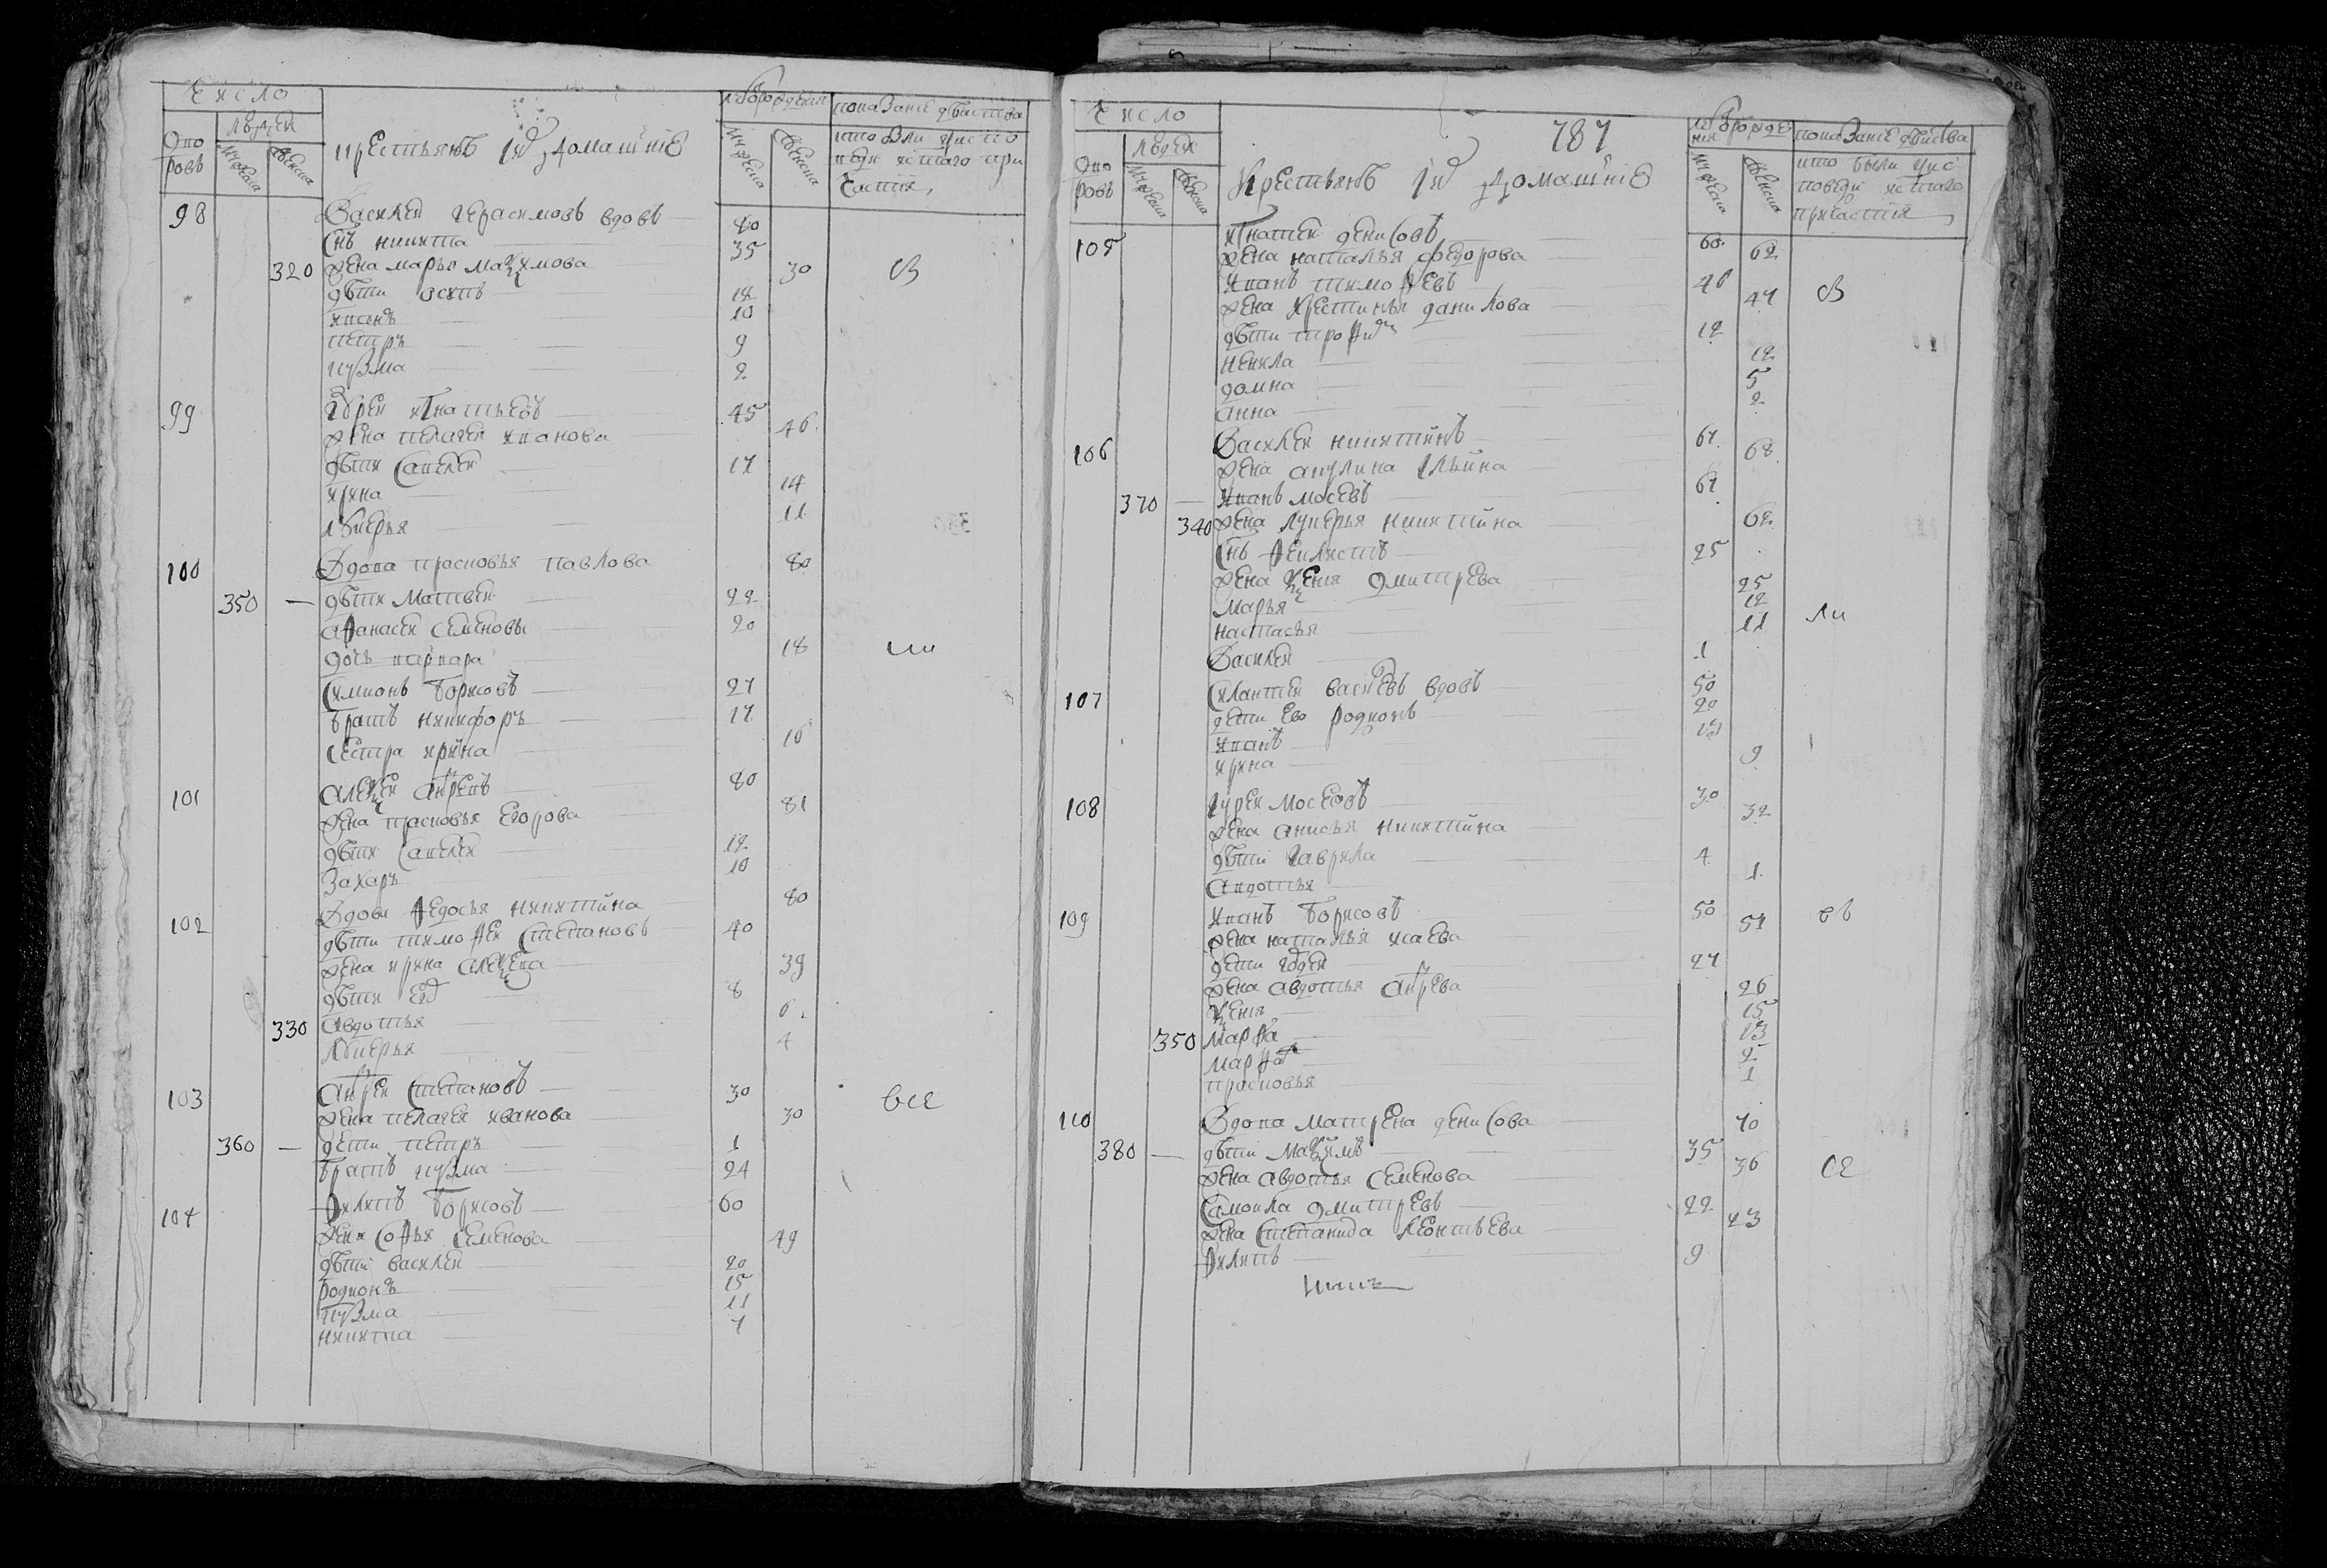 число
людей
дво
ровъ
мужеска
женска
крестьянъ их домашние
лѣ от рождения
мужеска
женска
показание действа
кто были у испо
педи и святаго при
частия
98 Василеи герасимовъ вдовъ 80
снъ никита 35
320 жена марья маѯимова 30 в
дѣти осипъ 12
иванъ 10
петръ 9
кузма 2
99 игнатьевъ 45
жена пелагея иванова 46
дѣти савелеи 17
ирина 14
лукерья 11
100 Вдова прасковья павлова 80
350 дѣти матвеи 22
афанасеи семеновы 20
дочь варвара 18 ли
симионъ борисовъ 27
братъ никифоръ 17
сестра ирина 16
101 алеѯеи андреевъ 80
жена прасковья егорова 81
дѣти савелеи 12
захаръ 10
102 Вдова федосья никитина 80
дѣти тимофеи степановъ 40
жена ирина алеѯева 39
дѣти 8
330 авдотья 6
лукерья 4
103 андреи степановъ 30
жена пелагея иванова 30 все
360 дети петръ 1
братъ кузма 24
104 филипъ борисовъ 60
жена софья семенова 49
дѣти василеи 20
родионъ 15
кузма 11
никита 7
число
787
людей
дво
ровъ
мужеска
женска
крестьянъ их домашние
лѣ от рожде
ния
мужеска
женска
показание действа
кто были у ис
поведи и святаго
причастия
105 игнатеи денисовъ 60
жена наталья федорова 62
иванъ тимофеевъ 46
жена крестинья данилова 47 в
дѣти трофим 12
некла 12
домна 5
анна 2
106 Василеи никитинъ 67
жена акулина ильина 68
370 иванъ мосеевъ 67
340 жена лукерья никитина 62
снъ феилистъ 25
жена ѯения дмитрева 25
марья 12
настасья 11 ли
Василеи 1
107 силантеи василевъ вдовъ 50
дети ево родионъ 20
иванъ 13
ирина 9
108 гуреи мосеевъ 30
жена анисья никитина 32
дѣти гаврила 4
авдотья 1
109 иванъ борисовъ 50
жена наталья исаева 51 въ
дети 27
жена авдотья андрева 26
ѯения 15
350 марфа 13
марфа 2
прасковья 1
110 Вдова матрена денисова 70
380 дѣти маѯимъ 35
жена авдотья семенова 36 се
самоила дмитревъ 22
жена степанида леонтьева 23
филипъ 9